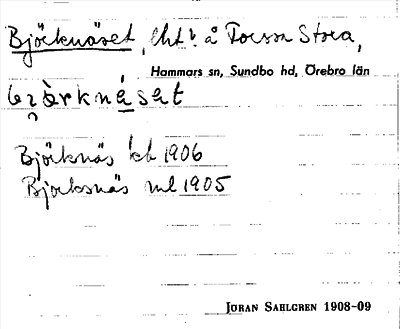 Björknäset, lht. å Torson Stora,
Hammars sn, Sundbo hd, Örebro län
Björknäs kb 1906
Björksnäs ml 1905
JÖRAN SAHLGREN 1908-09